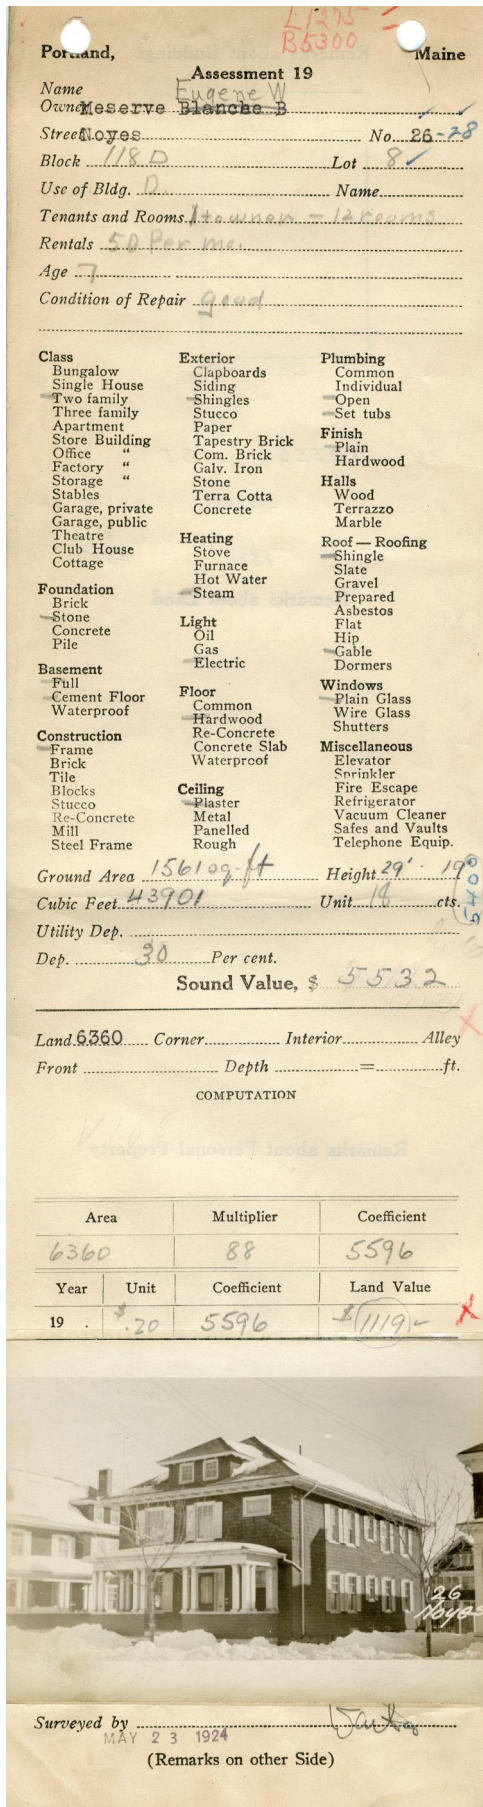 L1275
B5300
Portland, Maine
Assessment 19
Name Eugene W
Owner Meserve Blanche B
Street Noyes No. 26-28
Block 118D Lot 8
Use of Bldg. D. Name
Tenants and Rooms 1 to owner = 12 rooms
Rentals 50 Per mo.
Age 7
Condition of Repair good
Class
Bungalow
Single House
Two family
Three family
Apartment
Store Building
Office "
Factory "
Storage "
Stables
Garage, private
Garage, public
Theatre
Club House
Cottage
Foundation
Brick
Stone
Concrete
Pile
Basement
Full
Cement Floor
Waterproof
Construction
Frame
Brick
Tile
Blocks
Stucco
Re-Concrete
Mill
Steel Frame
Exterior
Clapboards
Siding
Shingles
Stucco
Paper
Tapestry Brick
Com. Brick
Galv. Iron
Stone
Terra Cotta
Concrete
Heating
Stove
Furnace
Hot Water
Steam
Light
Oil
Gas
Electric
Floor
Common
Hardwood
Re-Concrete
Concrete Slab
Waterproof
Ceiling
Plaster
Metal
Panelled
Rough
Plumbing
Common
Individual
Open
Set tubs
Finish
Plain
Hardwood
Halls
Wood
Terrazzo
Marble
Roof — Roofing
Shingle
Slate
Gravel
Prepared
Asbestos
Flat
Hip
Gable
Dormers
Windows
Plain Glass
Wire Glass
Shutters
Miscellaneous
Elevator
Sprinkler
Fire Escape
Refrigerator
Vacuum Cleaner
Safes and Vaults
Telephone Equip.
Ground Area 1561 sq. ft Height 29' 19'
Cubic Feet 43901 Unit 18 cts.
5400
Utility Dep.
Dep. 30 Per cent.
Sound Value, $ 5532
Land 6360 Corner Interior Alley
Front Depth = ft.
COMPUTATION
Area Multiplier Coefficient
6360 88 5596
Year Unit Coefficient Land Value
19 . $ .20 5596 $ 1119-
26
Noyes
Surveyed by
MAY 23 1924
(Remarks on other Side)